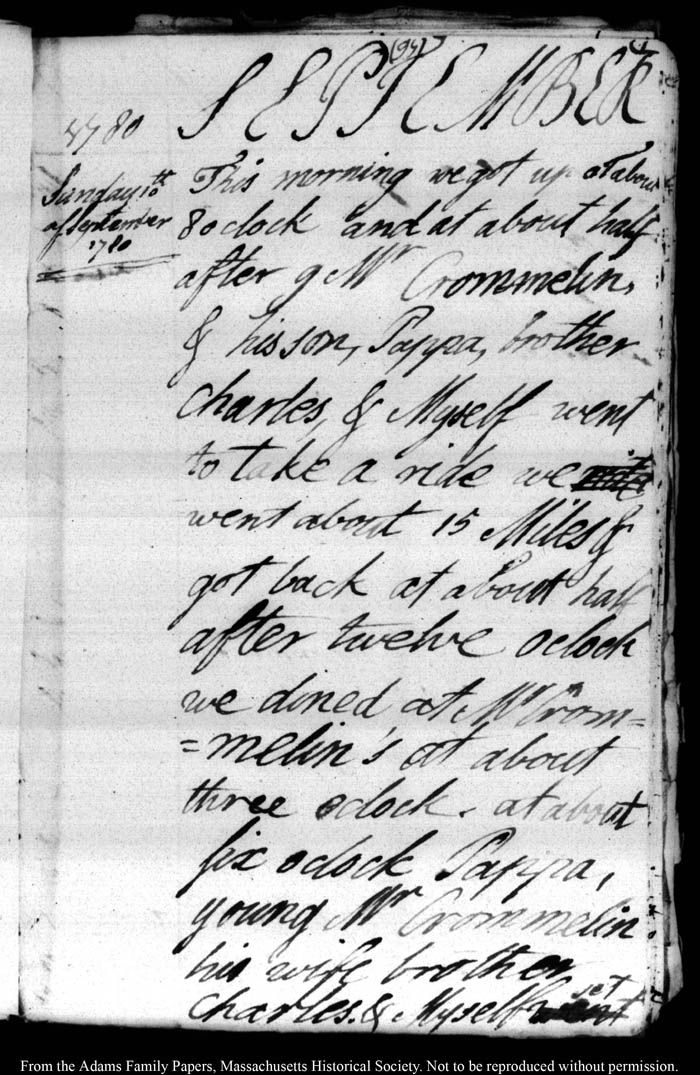 (94)
SEPTEMBER
1780
Sunday 10th
of September
1780
This morning we got up at about
8 oclock and at about half
after 9 Mr Crommelin,
& his son, Pappa, brother
charles, & Myself went
to take a ride we
went about 15 Miles &
got back at about half
after twelve oclock
we dined at Mr Crom=
=melin's at about
three oclock. at about
six oclock Pappa,
young Mr Crommelin
his wife brother
charles. & Myself set
From the Adams Family Papers, Massachusetts Historical Society. Not to be reproduced without permission.